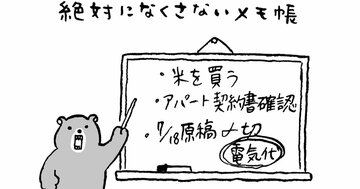 絶対になくさないメモ帳
・米を買う
・アパート契約書確認
・7/18原稿〆切
電気代